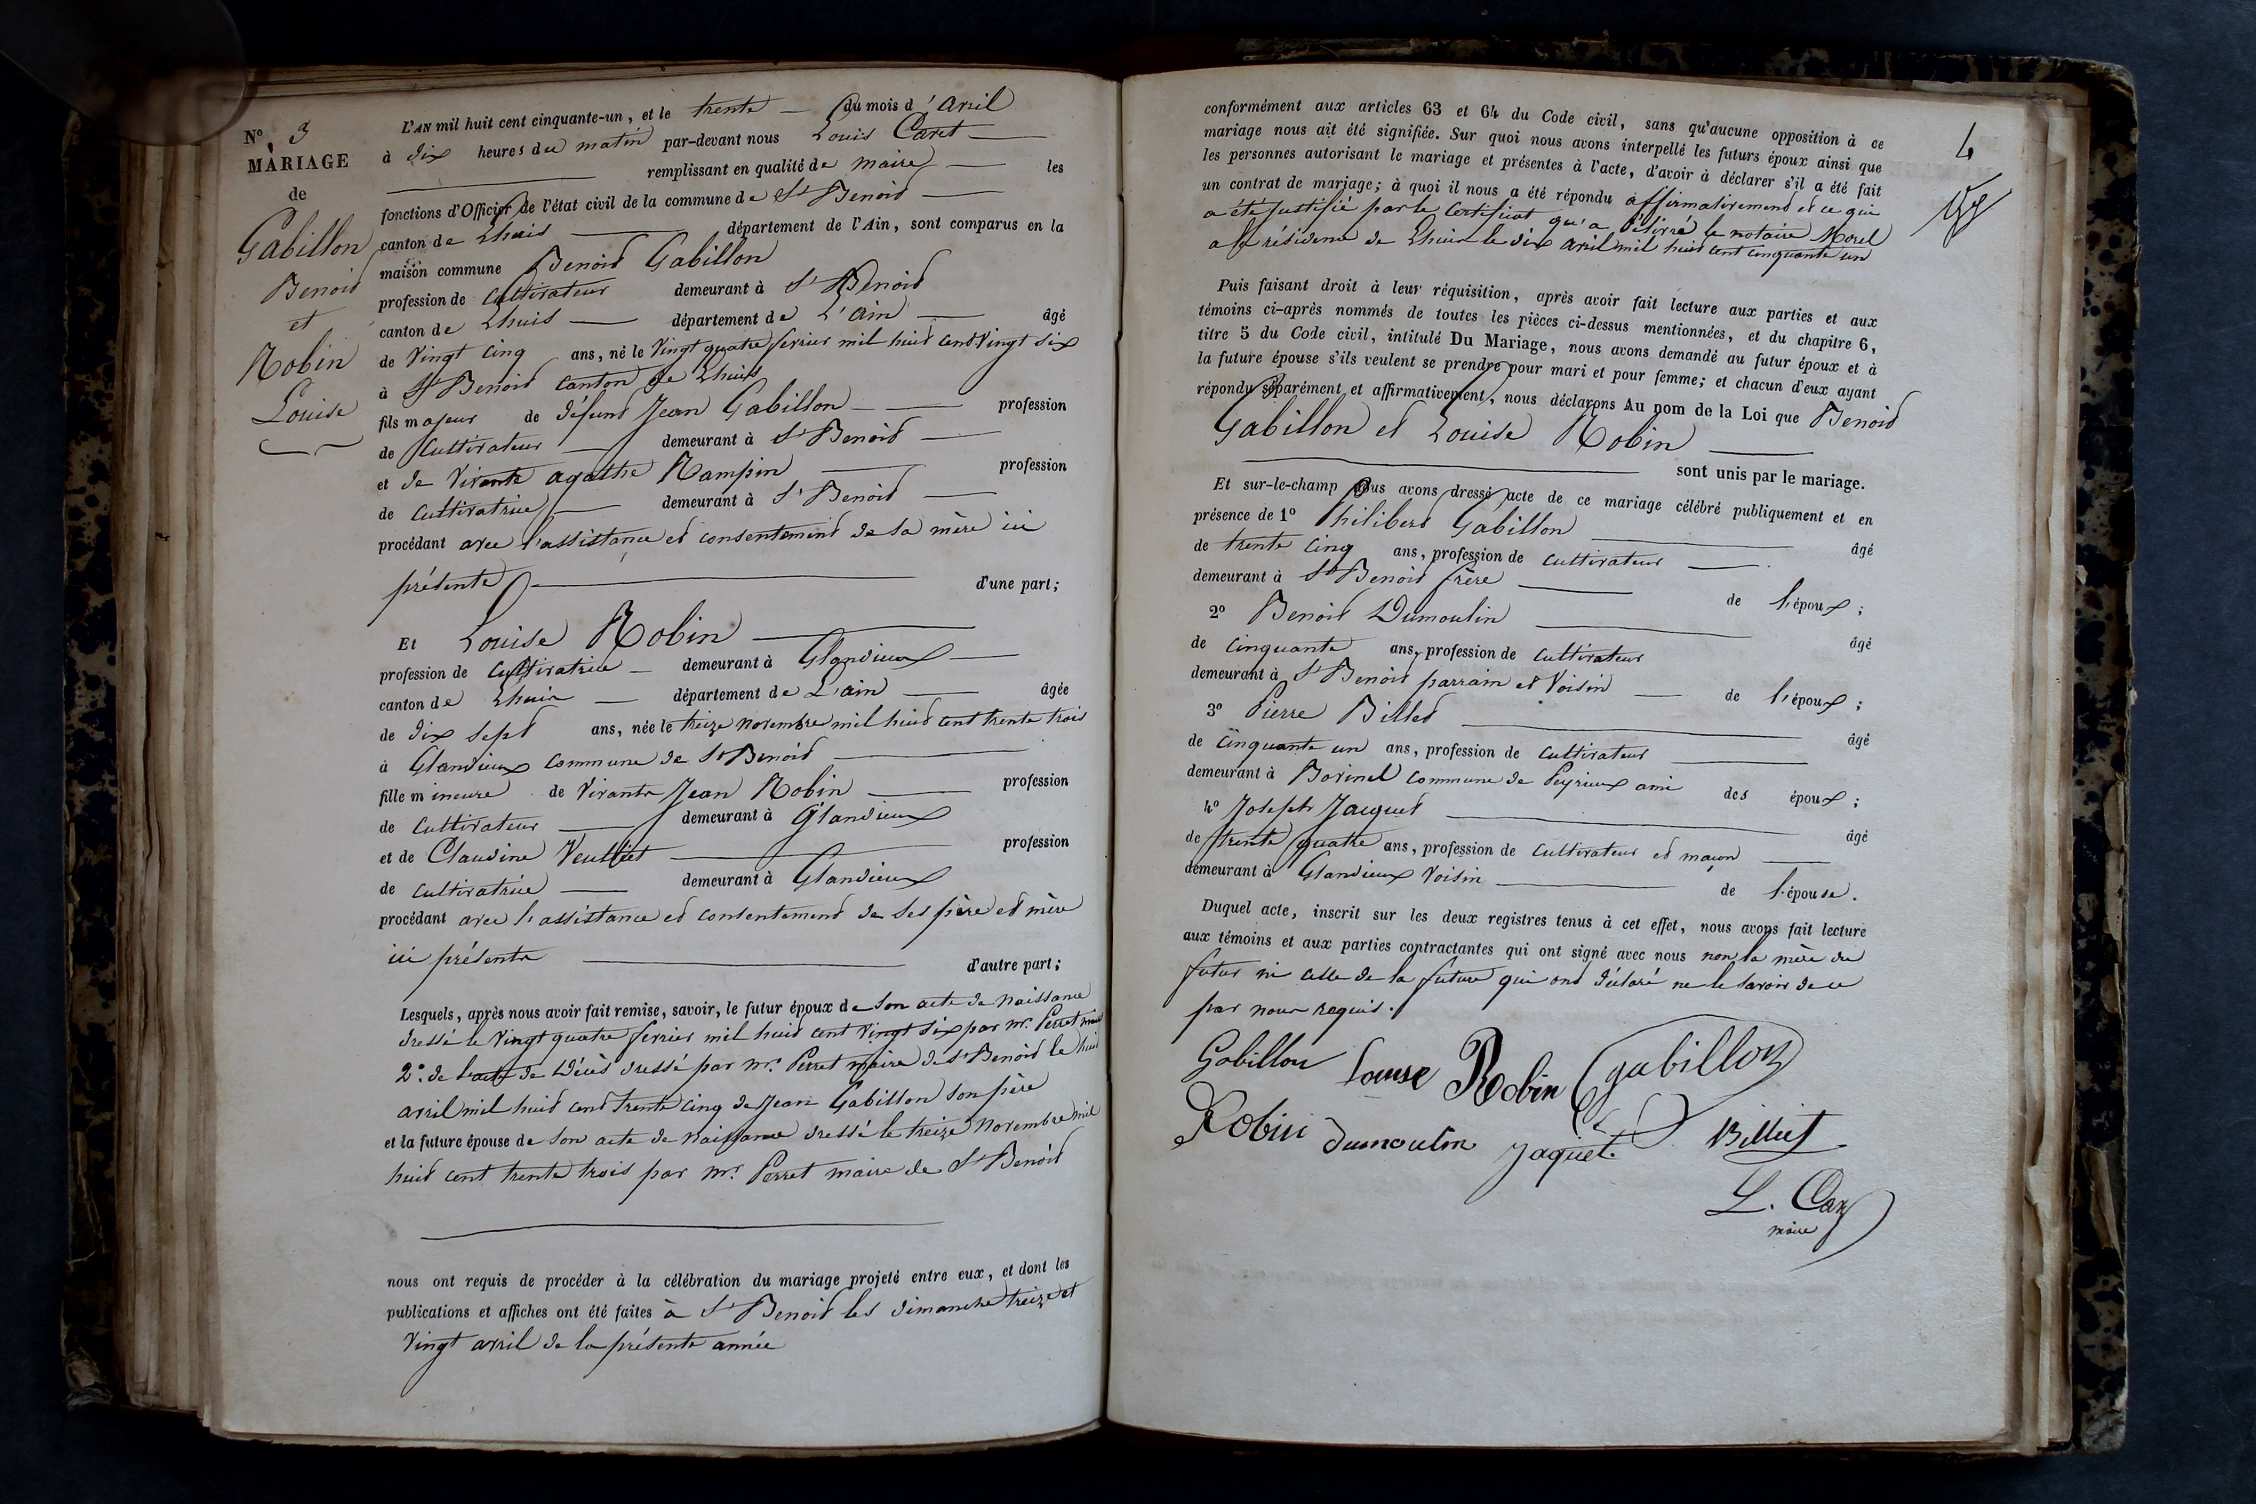 N.º 3
MARIAGE
de
Gabillon
Benoid
et
Robin
Louise
L'AN mil huit cent cinquante-un, et le trente du mois d'avril
à dix heures du matin par-devant nous Louis Caret
remplissant en qualité de maire les
fonctions d'Officier de l'état civil de la commune de St Benoid
canton de Lhuis département de l'Ain, sont comparus en la
maison commune Benoid Gabillon
profession de cultivateur demeurant à St Benoid
canton de Lhuis département de L'ain âgé
de Vingt cinq ans, né le Vingt quatre fevrier mil huid cend Vingt six
à St Benoid canton de Lhuis
fils majeur de défund Jean Gabillon profession
de cultivateur demeurant à St Benoid
et de Vivante agathe Rampin profession
de cultivatrice demeurant à St Benoid
procédant avec l'assistance ed consentemend de sa mère ici
présente d'une part;
Et Louise Robin
profession de cultivatrice demeurant à Glandieux
canton de Lhuis département de L'ain âgée
de dix sept ans, née le treize novembre mil huid cent trente trois
à Glandieux commune de St Benoid
fille mineure de Vivants Jean Robin profession
de cultivateur demeurant à Glandieux
et de Claudine Veuillet profession
de cultivatrice demeurant à Glandieux
procédant avec l'assistance ed consentemend de ses père ed mère
ici présents d'autre part;
Lesquels, après nous avoir fait remise, savoir, le futur époux de son acte de naissance
dressé le Vingt quatre fevrier mil huid cent vingt six par mr. Perret maire
2º. de l'acte de décès dressé par mr. Perret maire de St Benoid le huid
avril mil huid cend trente cinq de Jean Gabillon son père
et la future épouse de son acte de naissance dressé le treize Novembre mil
huid cent trente trois par mr. Perret maire de St Benoid
nous ont requis de procéder à la célébration du mariage projeté entre eux, et dont les
publications et affiches ont été faites à St Benoid les dimanche treize et
Vingt avril de la présente année
4
conformément aux articles 63 et 64 du Code civil, sans qu'aucune opposition à ce
mariage nous ait été signifiée. Sur quoi nous avons interpellé les futurs époux ainsi que
les personnes autorisant le mariage et présentes à l'acte, d'avoir à déclarer s'il a été fait
un contrat de mariage; à quoi il nous a été répondu affirmativemend ed ce qui
a été justifié par le certificat qu'a délivré le notaire Morel
a la résidence de Lhuis le dix avril mil huid cent cinquante un
Puis faisant droit à leur réquisition, après avoir fait lecture aux parties et aux
témoins ci-après nommés de toutes les pièces ci-dessus mentionnées, et du chapitre 6,
titre 5 du Code civil, intitulé Du Mariage, nous avons demandé au futur époux et à
la future épouse s'ils veulent se prendre pour mari et pour femme; et chacun d'eux ayant
répondu séparément et affirmativement, nous déclarons Au nom de la Loi que Benoid
Gabillon ed Louise Robin
sont unis par le mariage.
Et sur-le-champ nous avons dressé acte de ce mariage célébré publiquement et en
présence de 1º Philiberd Gabillon
de trente cinq ans, profession de cultivateur âgé
demeurant à St Benoid frère de l'époux;
2º Benoid Dumoulin
de cinquante ans, profession de cultivateur âgé
demeurant à St Benoid parrain ed Voisin de l'époux;
3º Pierre Billed
de cinquante un ans, profession de cultivateur âgé
demeurant à Bovinel commune de Peyrieux ami des époux;
4º Joseph Jacquet
de trente quatre ans, profession de cultivateur ed maçon âgé
demeurant à Glandieux Voisin de l'épouse.
Duquel acte, inscrit sur les deux registres tenus à cet effet, nous avons fait lecture
aux témoins et aux parties contractantes qui ont signé avec nous non la mère du
futur ni celle de la future qui ond déclaré ne le savoir de ce
par nous requis.
Gabillon Louise Robin gabillon
Robin Dumoulin Jaquet Billiet
L. Caret
maire